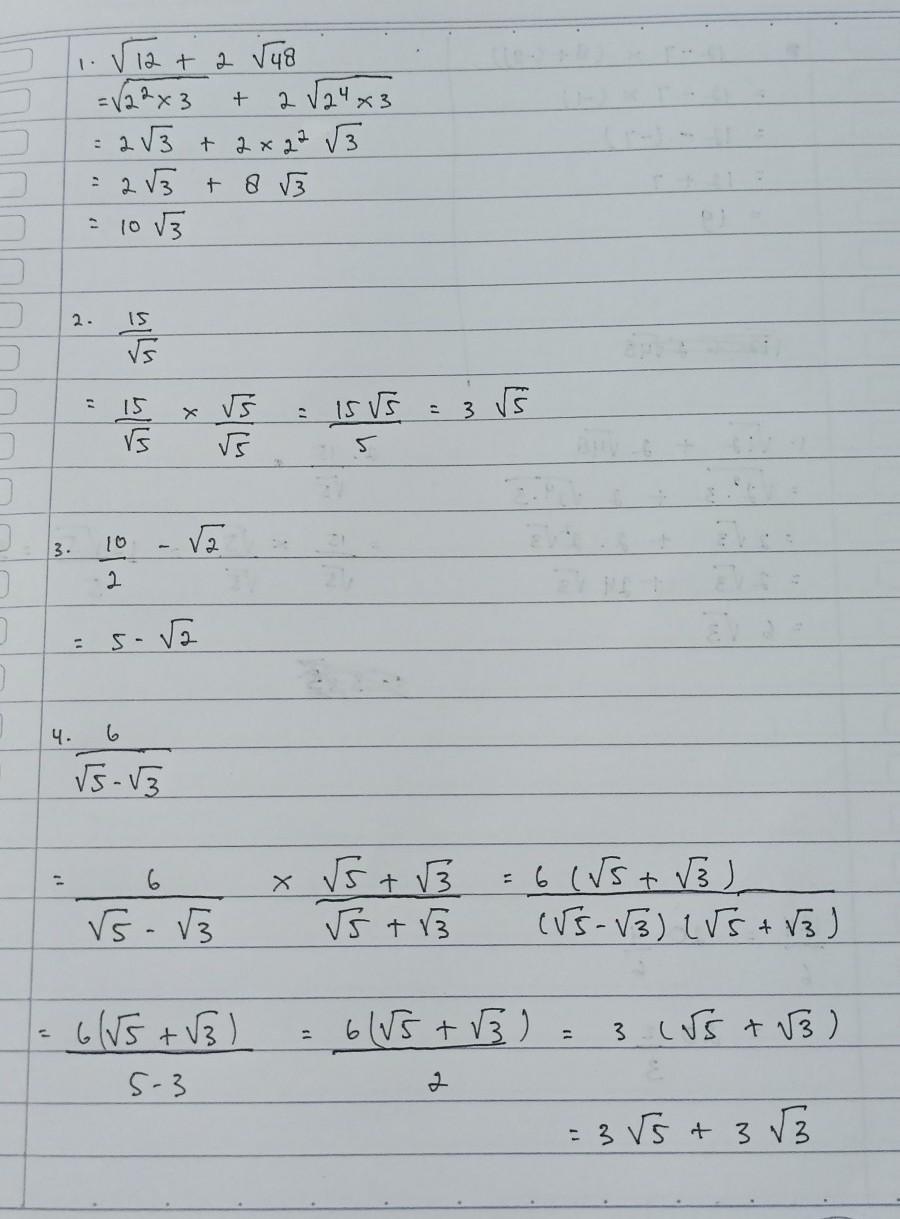 1. √12 + 2 √48
= √(2² × 3) + 2 √(2⁴ × 3)
= 2 √3 + 2 × 2² √3
= 2 √3 + 8 √3
= 10 √3
2. 15/√5
= 15/√5 × √5/√5 = 15√5/5 = 3 √5
3. 10/2 - √2
= 5 - √2
4. 6/(√5 - √3)
= 6/(√5 - √3) × (√5 + √3)/(√5 + √3) = 6 (√5 + √3)/((√5 - √3) (√5 + √3))
= 6(√5 + √3)/(5 - 3) = 6(√5 + √3)/2 = 3 (√5 + √3)
= 3 √5 + 3 √3